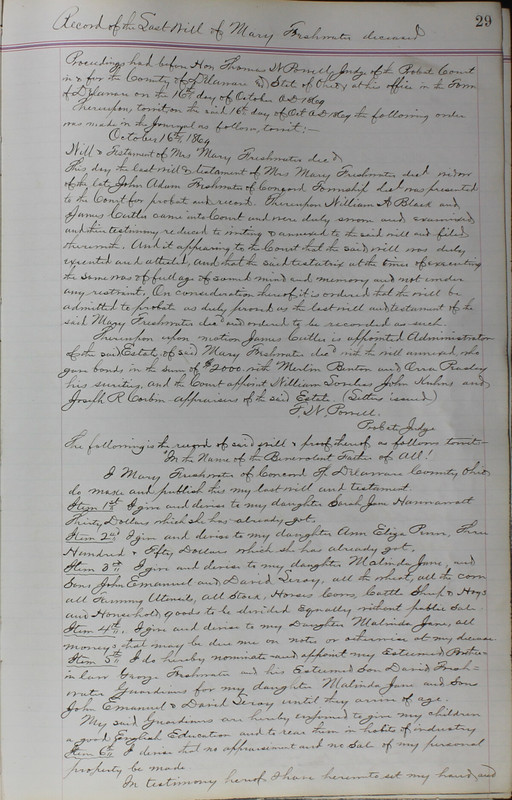 Record of the Last Will of Mary Freshwater deceased
29
Proceedings had before Hon. Thomas W Powell Judge of the Probate Court
in & for the County of Delaware & State of Ohio, at his office in the Town
of Delaware on the 16th day of October AD 1869
Thereupon, towit on the said 16th day of Oct AD 1869 the following order
was made in the Journal as follows, towit:—
October 16th 1869
Will & Testament of Mrs Mary Freshwater decd
This day the last will & testament of Mrs Mary Freshwater decd widow
of the late John Adam Freshwater of Concord Township decd was presented
to the Court for probat and record. Thereupon William A Black and
James Cutler came into Court and were duly sworn and examined
and their testimony reduced to writing & annexed to the said will and filed
therewith. And it appearing to the Court that the said will was duly
executed and attested, and that the said testatrix at the time of executing
the same was of full age of sound mind and memory and not under
any restraint. On consideration thereof, it is ordered that the will be
admitted to probate as duly proved as the last will and testament of the
said Mary Freshwater decd and ordered to be recorded as such.
Thereupon upon motion James Cutler is appointed Administrator
of the said Estate of said Mary Freshwater decd with the will annexed who
gave bonds in the sum of $2000 with Merlin and
his sureties, and the Court appoint William John Kuhns and
Joseph R Corbin appraisers of the said Estate. (Letters issued)
T. W. Powell
Probate Judge
The following is the record of said will & proof thereof as follows towit—
"In the Name of the Benevolent Father of All!
I Mary Freshwater of Concord Tp Delaware County Ohio
do make and publish this my last will and testament.
Item 1st I give and devise to my daughter Sarah Jane
Thirty Dollars which she has already got.
Item 2nd I give and devise to my daughter Ann Eliza Three
Hundred & Fifty Dollars which she has already got.
Item 3rd I give and devise to my daughter Malinda Jane, and
Sons John Emanuel and David Leroy, all the wheat, all the corn
all Farming Utensils, all Stock, Horses Cows, Cattle Sheep & Hogs
and Household goods to be divided Equally without public Sale.
Item 4th I give and devise to my Daughter Malinda Jane, all
moneys that may be due me on notes or otherwise at my decease
Item 5th I do hereby nominate and appoint my Esteemed Brother
in law George Freshwater and his Esteemed Son David Fresh=
water Guardians for my daughter Malinda Jane and Sons
John Emanuel & David Leroy until they arrive of age.
My said Guardians are hereby enjoined to give my children
a good English Education and to rear them in habits of industry
Item 6th I desire that no appraisement and no Sale of my personal
property be made
In testimony hereof I have hereunto set my hand and